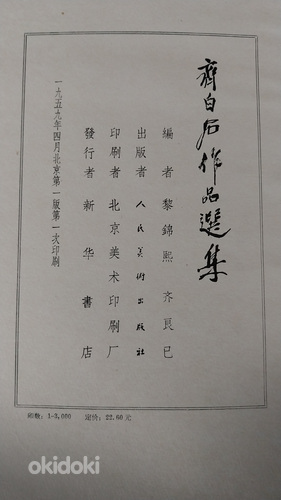 齊白石作品選集
編者 黎錦熙 齐良已
出版者 人民美術出版社
印刷者 北京美术印刷厂
發行者 新华書店
一九五九年四月北京第一版第一次印刷
印数：1-3,000 定价：22.60元
okidoki